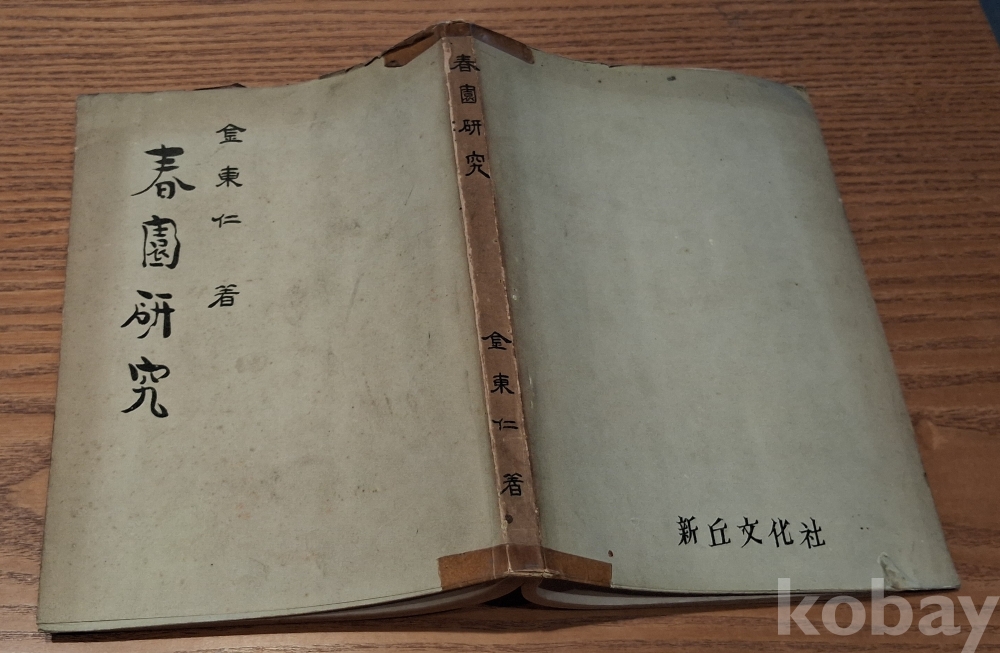 春園研究
金東仁 著
春園研究
金東仁 著
新丘文化社
kobay